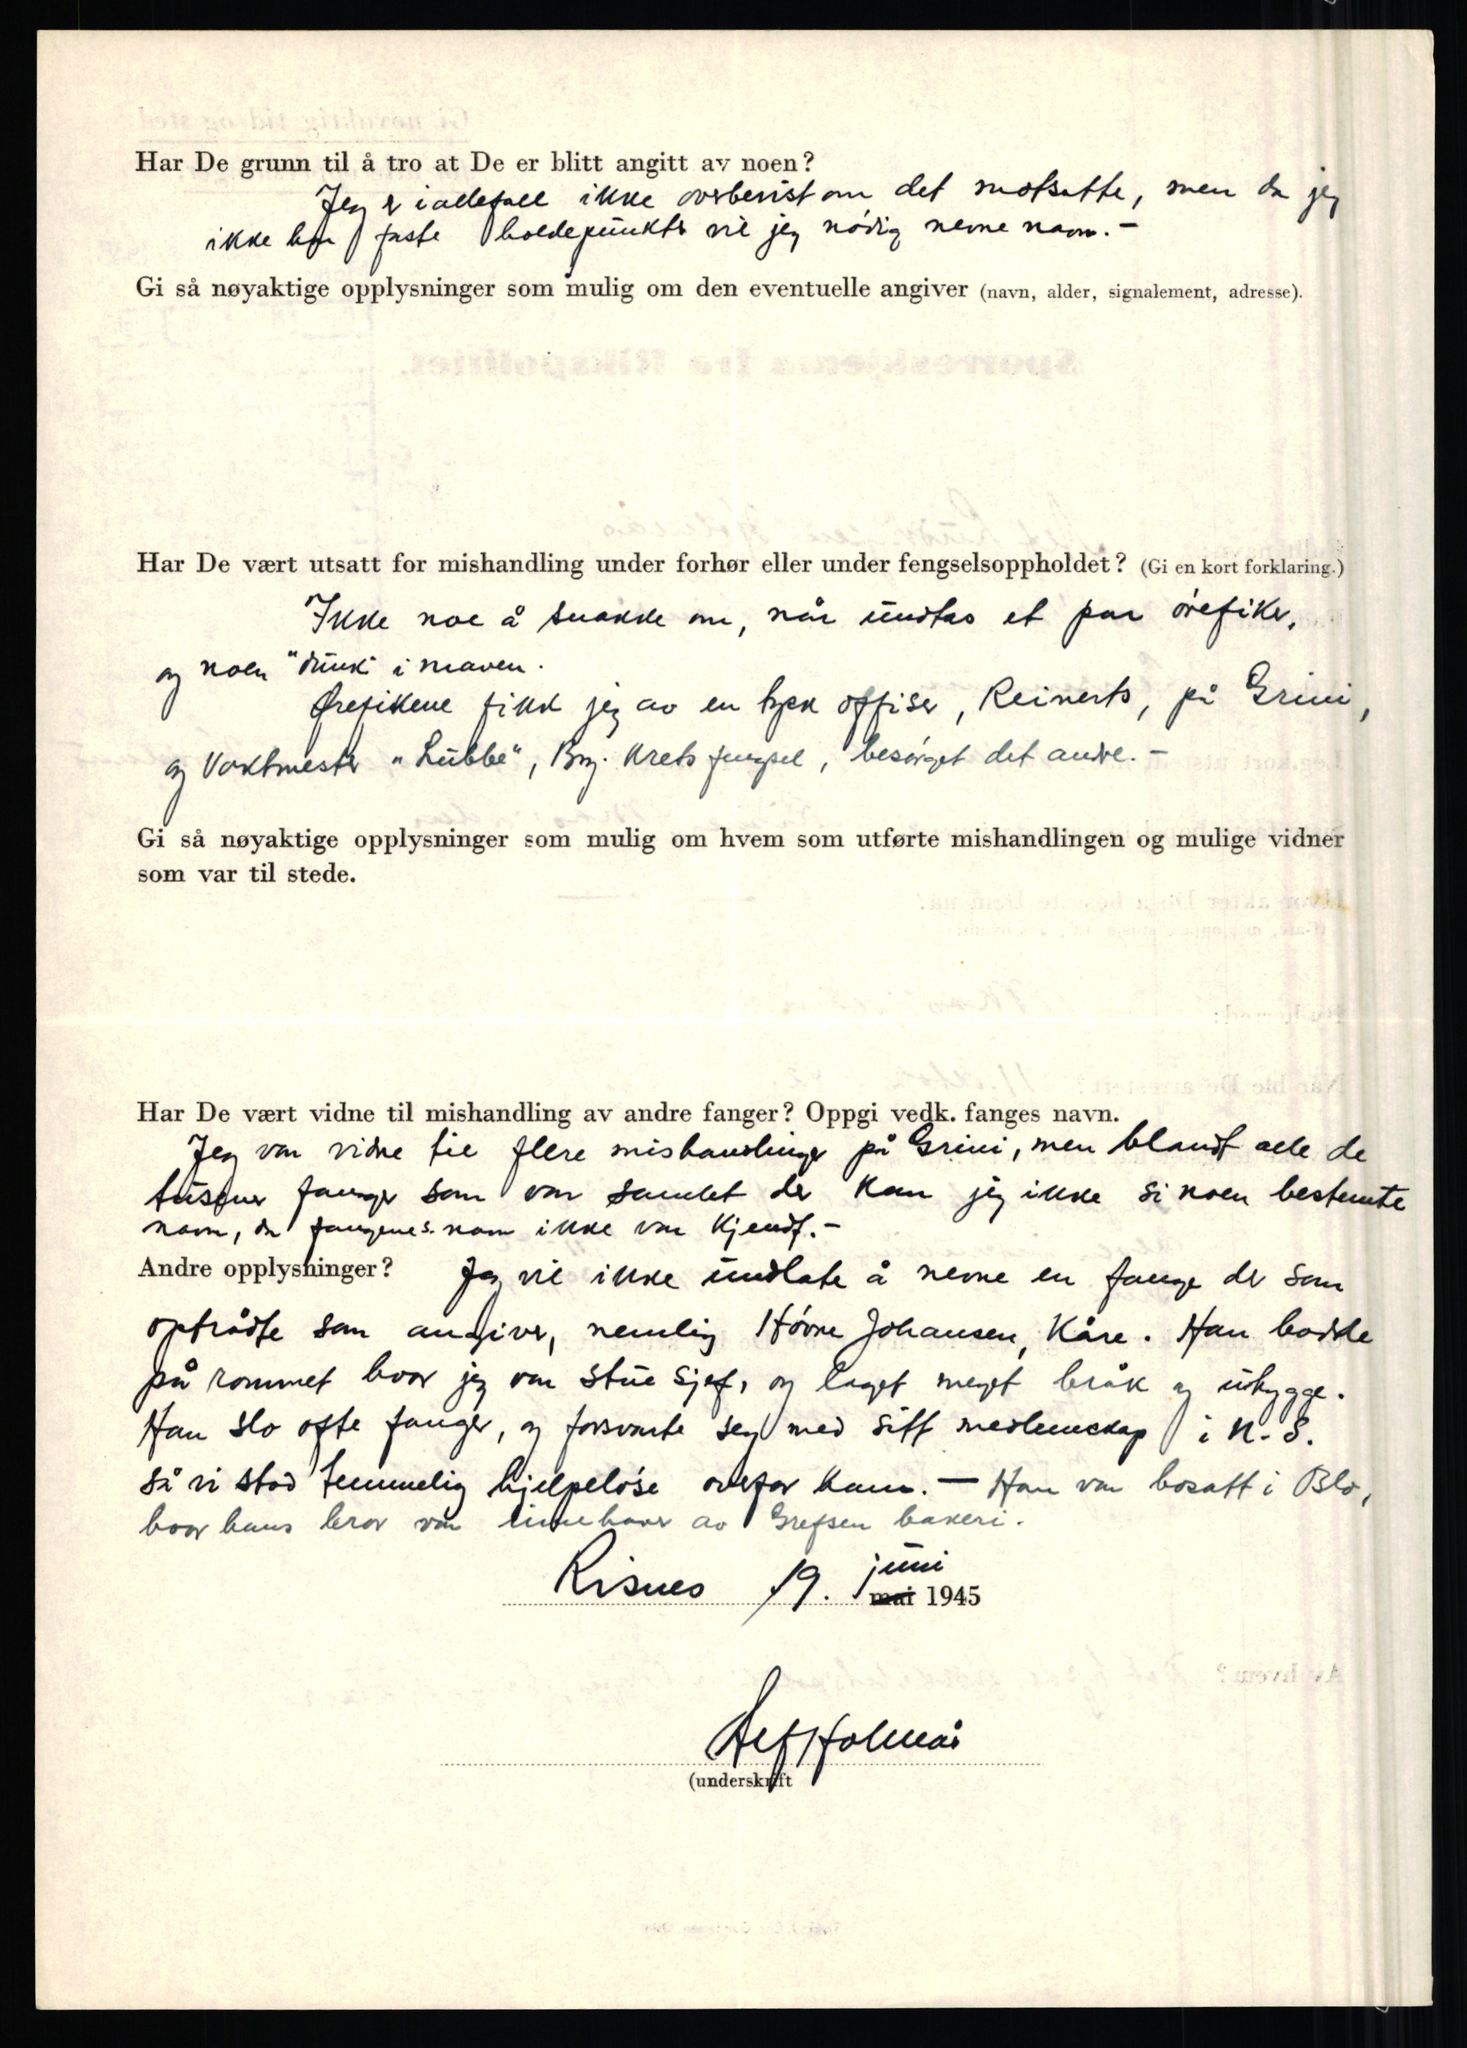 Har De grunn til å tro at De er blitt angitt av noen?
Jeg er iallefall ikke overbevist om det motsatte, men da jeg
ikke har faste holdepunkter vil jeg nødig nevne navn. -
Gi så nøyaktige opplysninger som mulig om den eventuelle angiver (navn, alder, signalement, adresse).
Har De vært utsatt for mishandling under forhør eller under fengselsoppholdet? (Gi en kort forklaring.)
Ikke noe å snakke om, når undtas et par ørefiker,
og noen "dunk" i maven.
Ørefikene fikk jeg av en tysk offiser, Reinerts, på Grini,
og Vaktmester "Lübbe", Brg. Kretsfengsel, besørget det andre. -
Gi så nøyaktige opplysninger som mulig om hvem som utførte mishandlingen og mulige vidner
som var til stede.
Har De vært vidne til mishandling av andre fanger? Oppgi vedk. fanges navn.
Jeg var vidne til flere mishandlinger på Grini, men blandt alle de
tusener fanger som var samlet der kan jeg ikke si noen bestemte
navn, da fangenes navn ikke var kjendt. -
Andre opplysninger? Jeg vil ikke undlate å nevne en fange der som
optrådte som angiver, nemlig Høvne Johansen, Kåre. Han bodde
på rommet hvor jeg var stuesjef, og laget meget bråk og uhygge.
Han slo ofte fanger, og forsvarte seg med sitt medlemskap i N.S.
så vi stod temmelig hjelpeløse overfor ham. - Han var bosatt i Oslo,
hvor hans bror var innehaver av Grefsen bakeri.
Risnes 19. juni
mai 1945
Alf Holmås
(underskrift